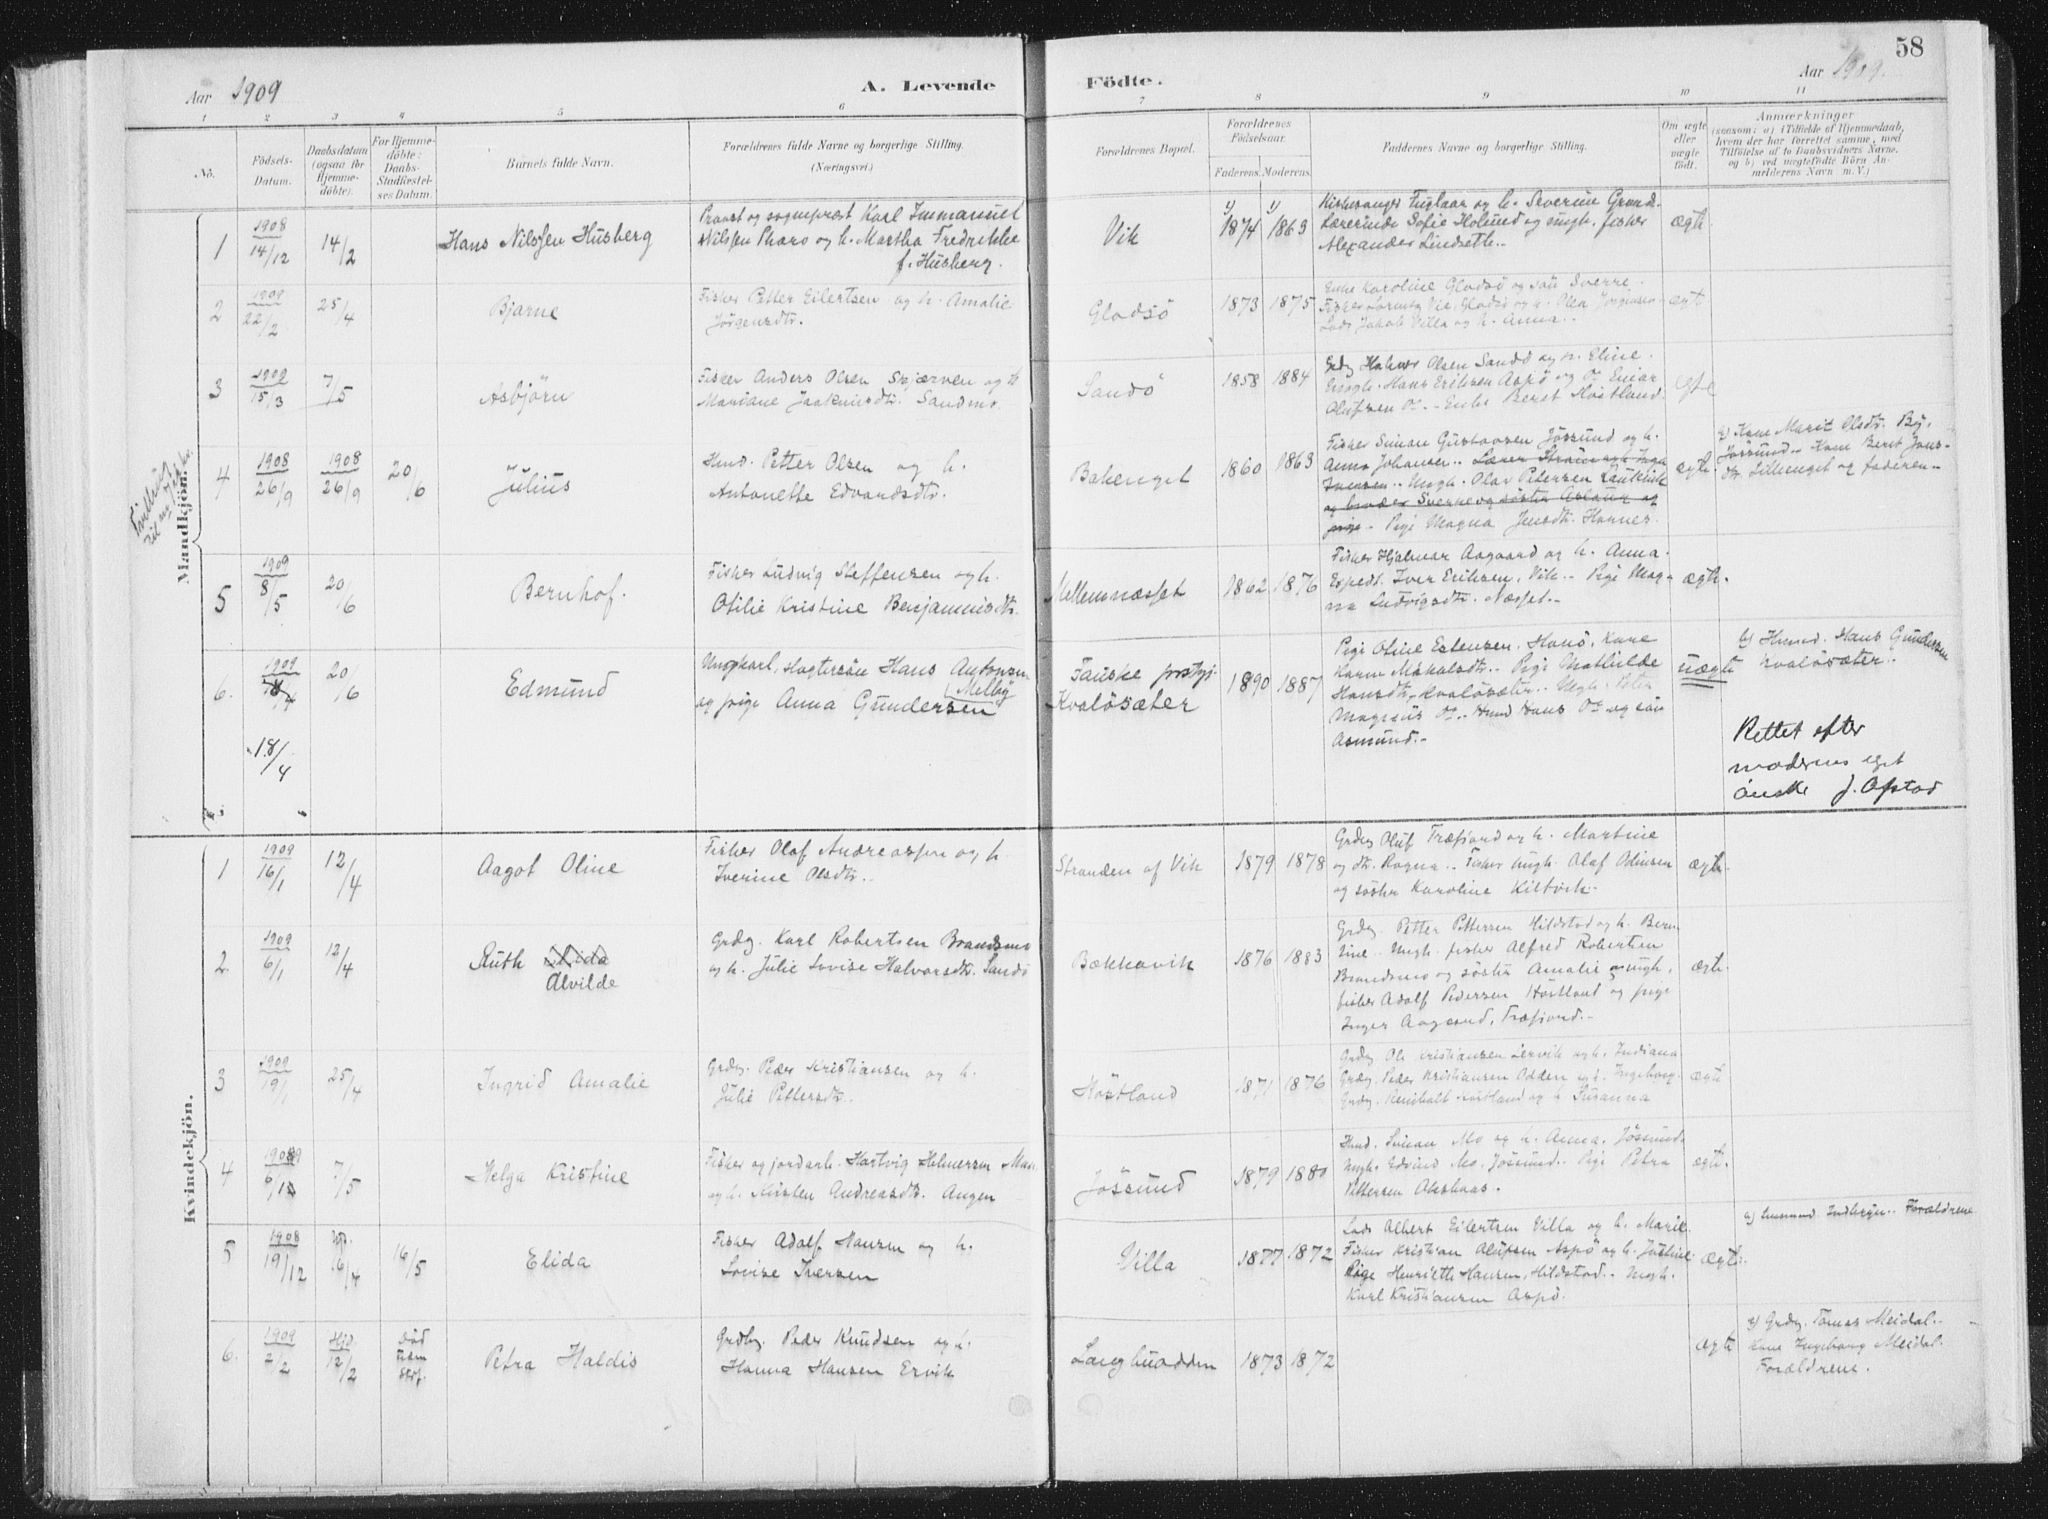 58
Aar 1909
A. Levende
Födte.
Aar 1909.
1 2 3 4 5 6 7 8 9 10 11
No.
Födsels-
Datum.
Daabsdatum
(ogsaa for
Hjemme-
döbte).
For Hjemme-
döbte:
Daabs-
Stadfæstel-
ses Datum.
Barnets fulde Navn.
Forældrenes fulde Navne og borgerlige Stilling.
(Næringsvei.)
Forældrenes Bopæl.
Forældrenes
Födselsaar.
Faderens. Moderens.
Faddernes Navne og borgerlige Stilling.
Om ægte
eller
uægte
födt.
Anmærkninger
(saasom: a) i Tilfælde af Hjemmedaab,
hvem der har forrettet samme, med
Tilföielse af to Daabsvidners Navne,
og b) ved uægtefödte Börn An-
mælderens Navn m. V.)
Mandkjön.
1
1908
14/12
14/2
Hans Nilssen Husberg
Provst og sogneprest Karl Immanuel
Nilssen Pharo og h. Martha Fredrikke
f. Husberg.
Vik
1874 1863
Kirkesanger Fuglaar og h. Severine Grund.
Lærerinde Sofie Holund og ungk. fisker
Alexander Lindseth.-
ægte
2
1909
22/2
25/4
Bjarne
Fisker Petter Eilertsen og h. Amalie
Jörgensdtr.
Gladsö
1873 1875
Enke Karoline Gladsö og sön Sverre.
Lods Jakob Villa og h. Anna..
ægte
3
1909
15/3
7/5
Asbjörn
Fisker Anders Olsen Skjærven og h
Mariane Sandmo
Sandö
1858 1884
Olsen Sandö og h. Eline.
Ungk. Hans Eriksen Aspö og Do Einar
Olufsen Do.- Enke Beret Höstland.
ægte
4
1908
26/9
1908
26/9
20/6
Julius
Husmd. Petter Olsen og h.
Antonette Edvardsdtr.
Bakenget
1860 1863
Fisker Simon Gustavsen Jössund og h.
Anna Johansen..
Ungk. Olav Petersen
Pige Magna Jensdtr. Harnes.
ægte
a) Kone Marit Olsdtr. By,
Jössund.. Kone Beret Jens-
dtr. Lillenget og faderen.-
5
1909
8/5
20/6
Bernhof.
Fisker Ludvig Steffensen og h.
Otilie Kristine Benjaminsdtr.
Mellemnæsset
1862 1876
Fisker Hjalmar Aagaard og h. Anna.
Exped. Iver Eriksen, Vik.- Pige Mag-
na Ludvigsdtr. Næsset.-
ægte
6.
1909
20/6
Edmund
Ungkarl, slagtersön Hans Antonsen
Melby
og pige Anna Gundersen
Fauske prstgj.
Kvalösæter
1890 1887
Pige Oline Estensen, Hansö. Kone
Karen Mikalsdtr.. Pige Mathilde
Hansdtr. Kvalösæter.. Ungk. Peter
Magnus Do.. Husmd Hans Do og sön
Asmund.-
uægte
b) Husmd. Hans Gundersen
Kvalösæter..
18/4
Rettet efter
moderens eget
önske J. Ofstad
Kvindekjön.
1
1909
16/1
12/4
Aagot Oline
Fisker Olaf Andreassen og h
Iverine Olsdtr..
Stranden af Vik
1879 1878
Grdbg Oluf Træfjord og h. Martine
og dtr. Ragna.. Fisker ungk. Olaf Odinsen
og söster Karoline Kiltvik.-
ægte
2.
1909
6/1
12/4
Ruth
Alvilde
Grdbg. Karl Robertsen Brandsmo
og h. Julie Lovise Halvorsdtr. Sandö
Bækkavik
1876 1883
Grdbg. Petter Pettersen Hildstad og h. Bern-
tine.. Ungk. fisker Alfred Robertsen
Brandsmo og söster Amalie og ungk.
fisker Adolf Pedersen Höstland og pige
Inger Aagesnd, Træfjord.-
ægte
3
1909
19/1
25/4
Ingrid Amalie
Grdbg. Peder Kristiansen og h.
Julie Pettersdtr..
Höstland
1871 1876
Grdbg. Ole Kristiansen Lervik og h. Indiana
Grdbg. Peder Kristiansen Odden og h. Ingeborg.
Grdbg. Reinholt Höstland og h. Susanna
ægte
4
7/5
Helga Kristine
Fisker og jordarb. Hartvig Helmersen Moen
og h. Kirsten Andreasdtr. Angen
Jössund
1879 1880
Husmd. Simon Mo og h. Anna, Jössund.
Ungk. Edvind Mo, Jössund.. Pige Petra
Pettersen
ægte
5
1908
19/12
16/4
16/5
Elida
Fisker Adolf Hansen og h.
Lovise Iversen
Villa
1877 1872
Lods Albert Eilertsen Villa og h. Marie
Fisker Kristian Olufsen Aspö og h. Justine
Pige Henriette Hansen, Hildstad.. Ungk.
Karl Kristiansen Aspö.
ægte
Forældrene
6.
1909
2/2
Hjd.
12/2
Död
uden
stdf.
Petra Haldis
Grdbg. Peder Knudsen og h.
Hanna Hansen Ervik
Langhuodden
1873 1872
ægte
a) Grdbg. Tomas Meidal..
Kone Ingeborg Meidal.
Forældrene.